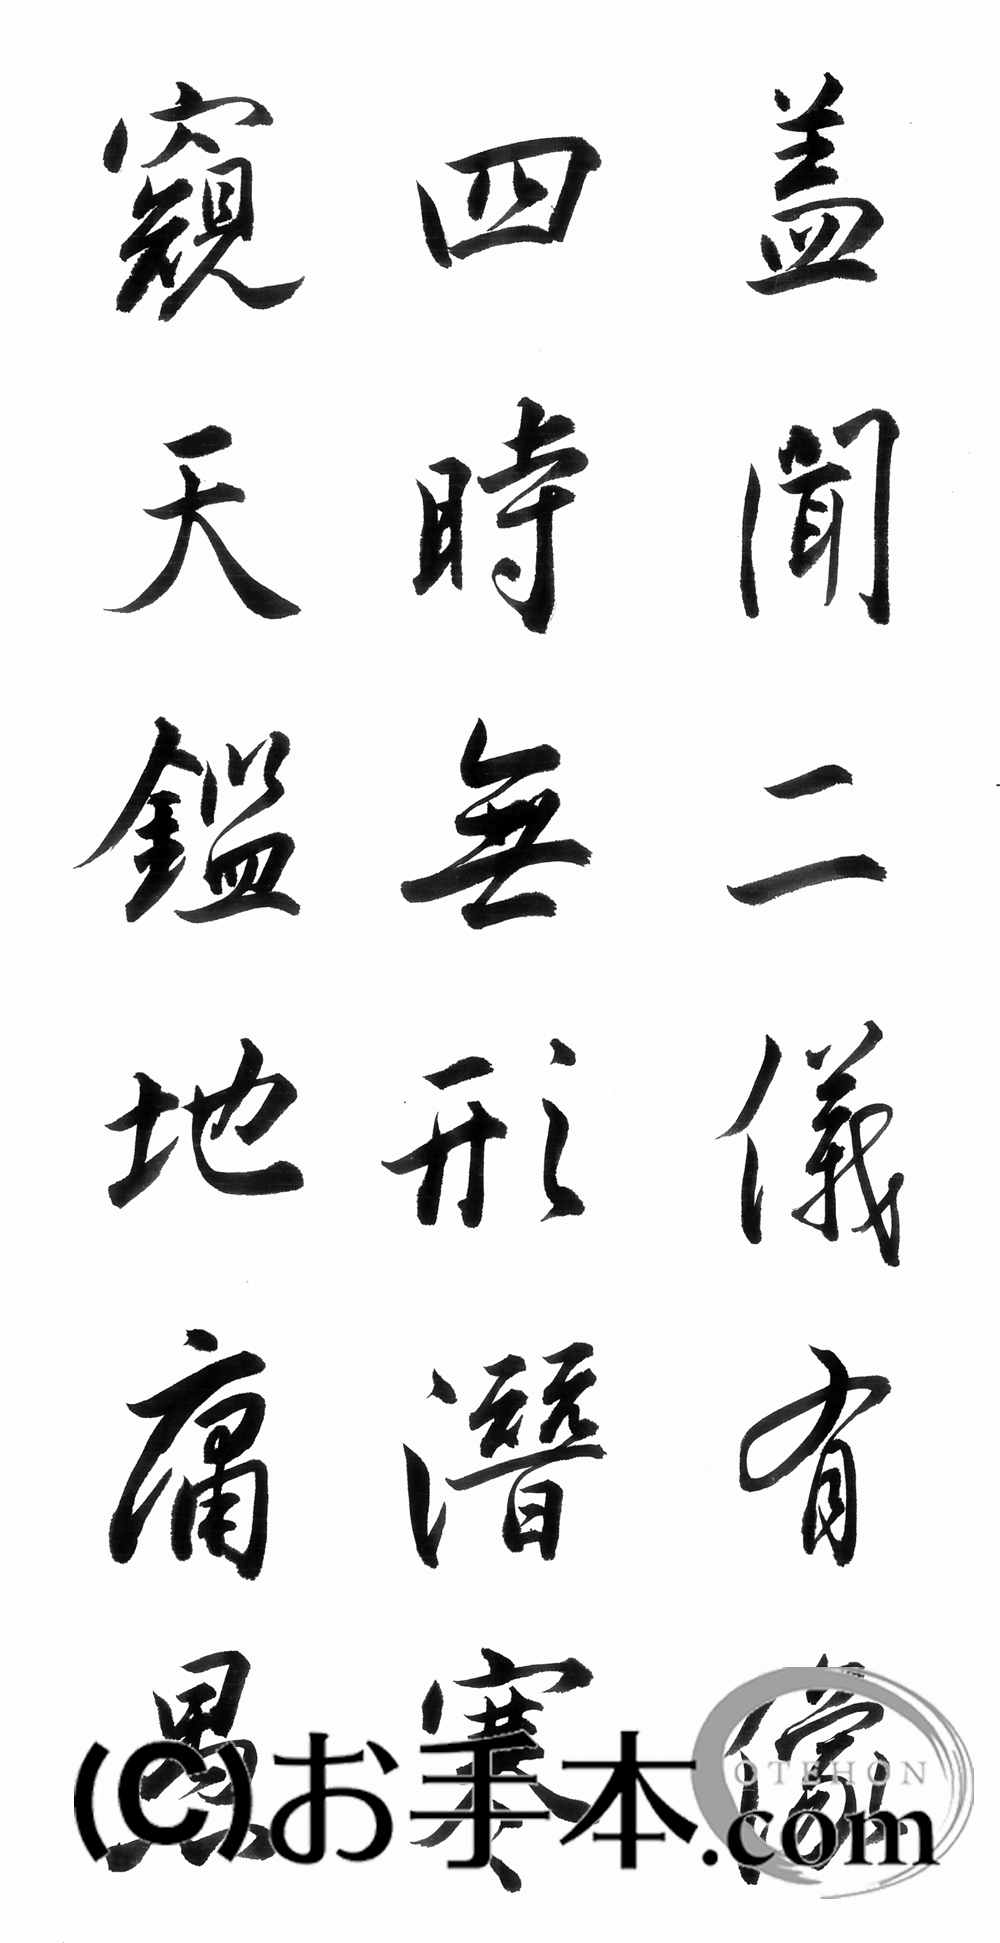 盖聞二儀有像
四時無形潛寒
窺天鑑地庸愚
(C)お手本.com
OTEHON